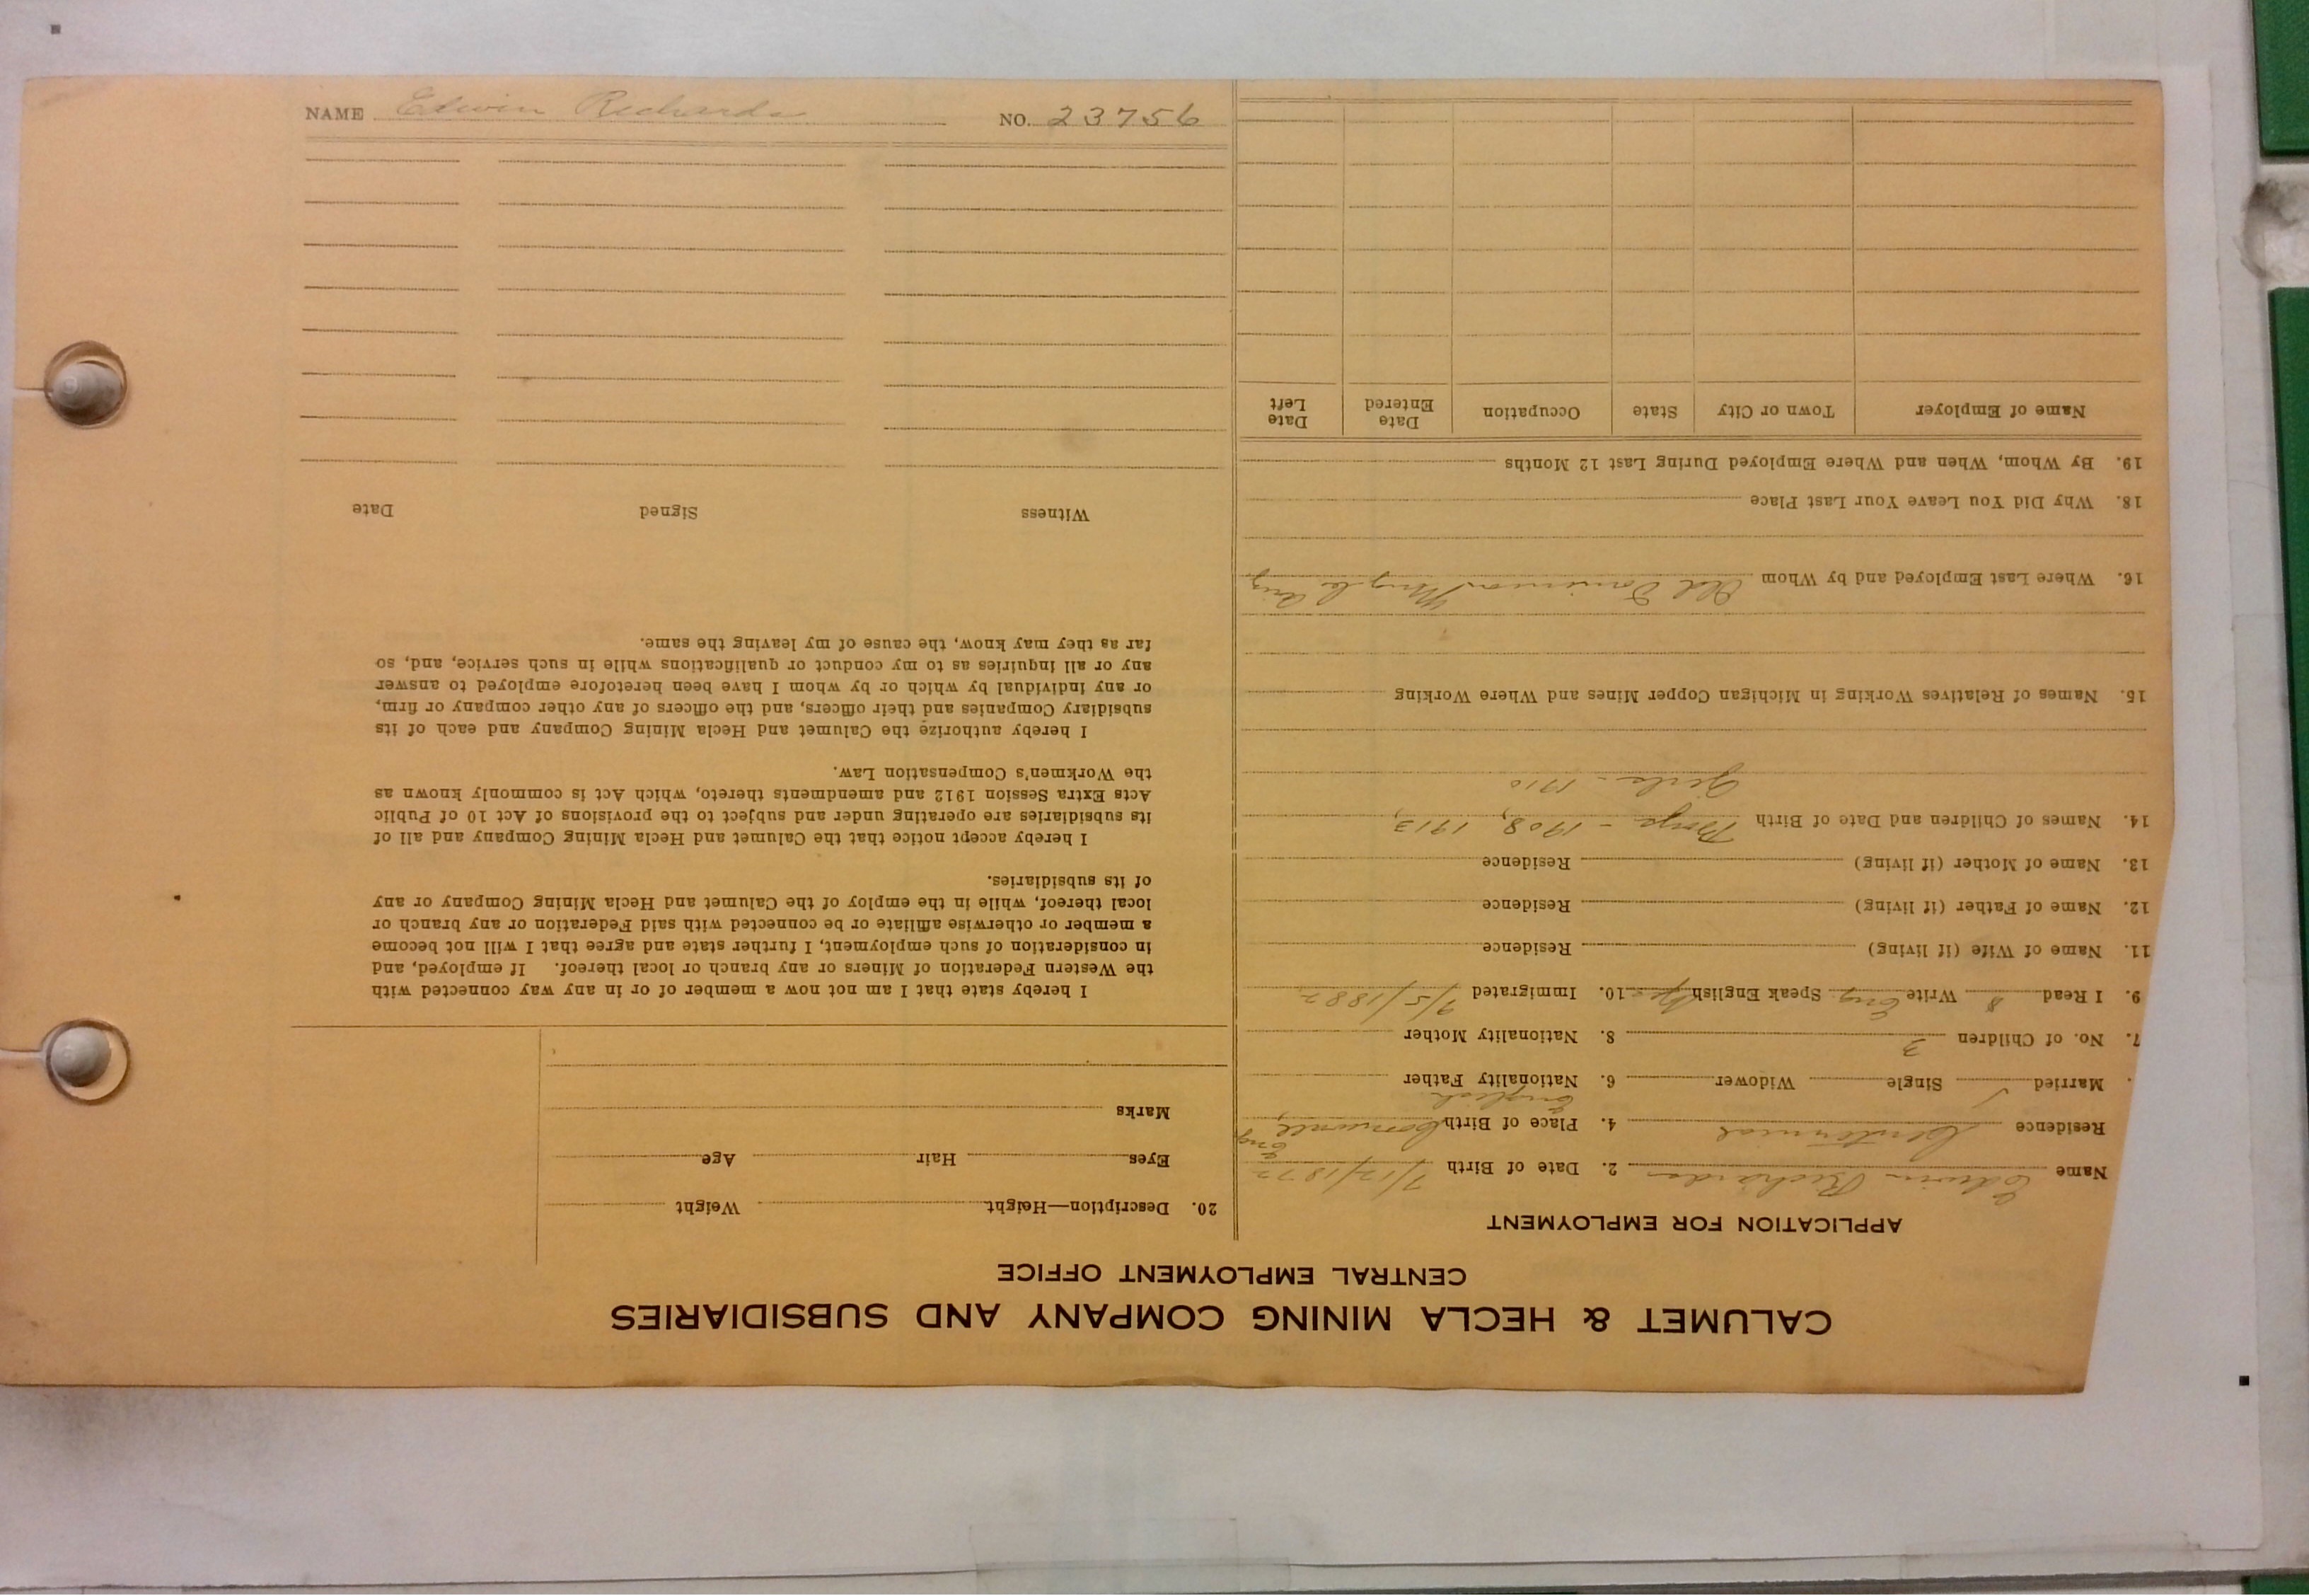 NAME Edwin Richards NO. 23756
CALUMET & HECLA MINING COMPANY AND SUBSIDIARIES
CENTRAL EMPLOYMENT OFFICE
APPLICATION FOR EMPLOYMENT
Name Edwin Richards 2. Date of Birth 7/12/1872
Residence Centennial 4. Place of Birth Cornwall, Eng
. Married ✓ Single Widower 6. Nationality Father English
7. No. of Children 3 8. Nationality Mother
9. I Read & Write Eng Speak English Yes 10. Immigrated
11. Name of Wife (if living) Residence
12. Name of Father (if living) Residence
13. Name of Mother (if living) Residence
14. Names of Children and Date of Birth Boys - 1908, 1913,
Girls - 1910
15. Names of Relatives Working in Michigan Copper Mines and Where Working
16. Where Last Employed and by Whom Old Dominion
18. Why Did You Leave Your Last Place
19. By Whom, When and Where Employed During Last 12 Months
Name of Employer Town or City State Occupation Date Entered Date Left
20. Description—Height Weight
Eyes Hair Age
Marks
I hereby state that I am not now a member of or in any way connected with
the Western Federation of Miners or any branch or local thereof. If employed, and
in consideration of such employment, I further state and agree that I will not become
a member or otherwise affiliate or be connected with said Federation or any branch or
local thereof, while in the employ of the Calumet and Hecla Mining Company or any
of its subsidiaries.
I hereby accept notice that the Calumet and Hecla Mining Company and all of
its subsidiaries are operating under and subject to the provisions of Act 10 of Public
Acts Extra Session 1912 and amendments thereto, which Act is commonly known as
the Workmen's Compensation Law.
I hereby authorize the Calumet and Hecla Mining Company and each of its
subsidiary Companies and their officers, and the officers of any other company or firm,
or any individual by which or by whom I have been heretofore employed to answer
any or all inquiries as to my conduct or qualifications while in such service, and, so
far as they may know, the cause of my leaving the same.
Witness Signed Date